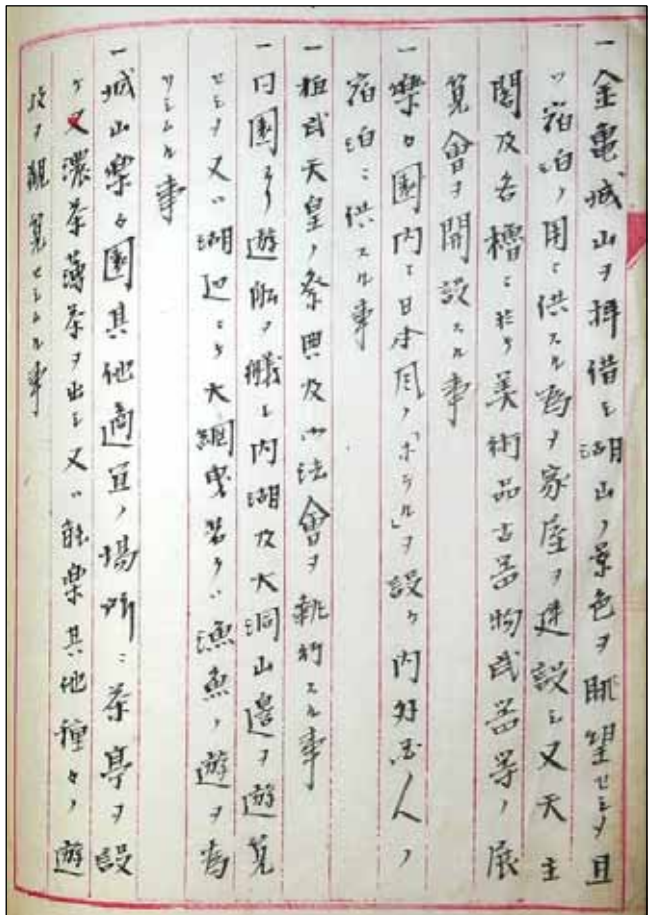 一金亀城山ヲ拝借シ湖山ノ景色ヲ眺望セシメ且
ツ宿泊ノ用ニ供スル為メ家屋ヲ建設シ又天主
閣及各櫓ニ於テ美術品古器物武器等ノ展
覧會ヲ開設スル事
一樂々園内ニ日本風ノ「ホテル」ヲ設ケ内外國人ノ
宿泊ニ供スル事
一桓武天皇ノ祭典及ヒ法會ヲ執行スル事
一同園ヨリ遊船ヲ艤シ内湖及大洞山邊ヲ遊覧
セシメ又ハ湖辺ニテ大網曳若クハ漁魚ノ遊ヲ為
サシムル事
一城山樂々園其他適宜ノ場所ニ茶亭ヲ設
ケ又濃茶薄茶ヲ出シ又ハ能樂其他種々ノ遊
技ヲ観覧セシムル事